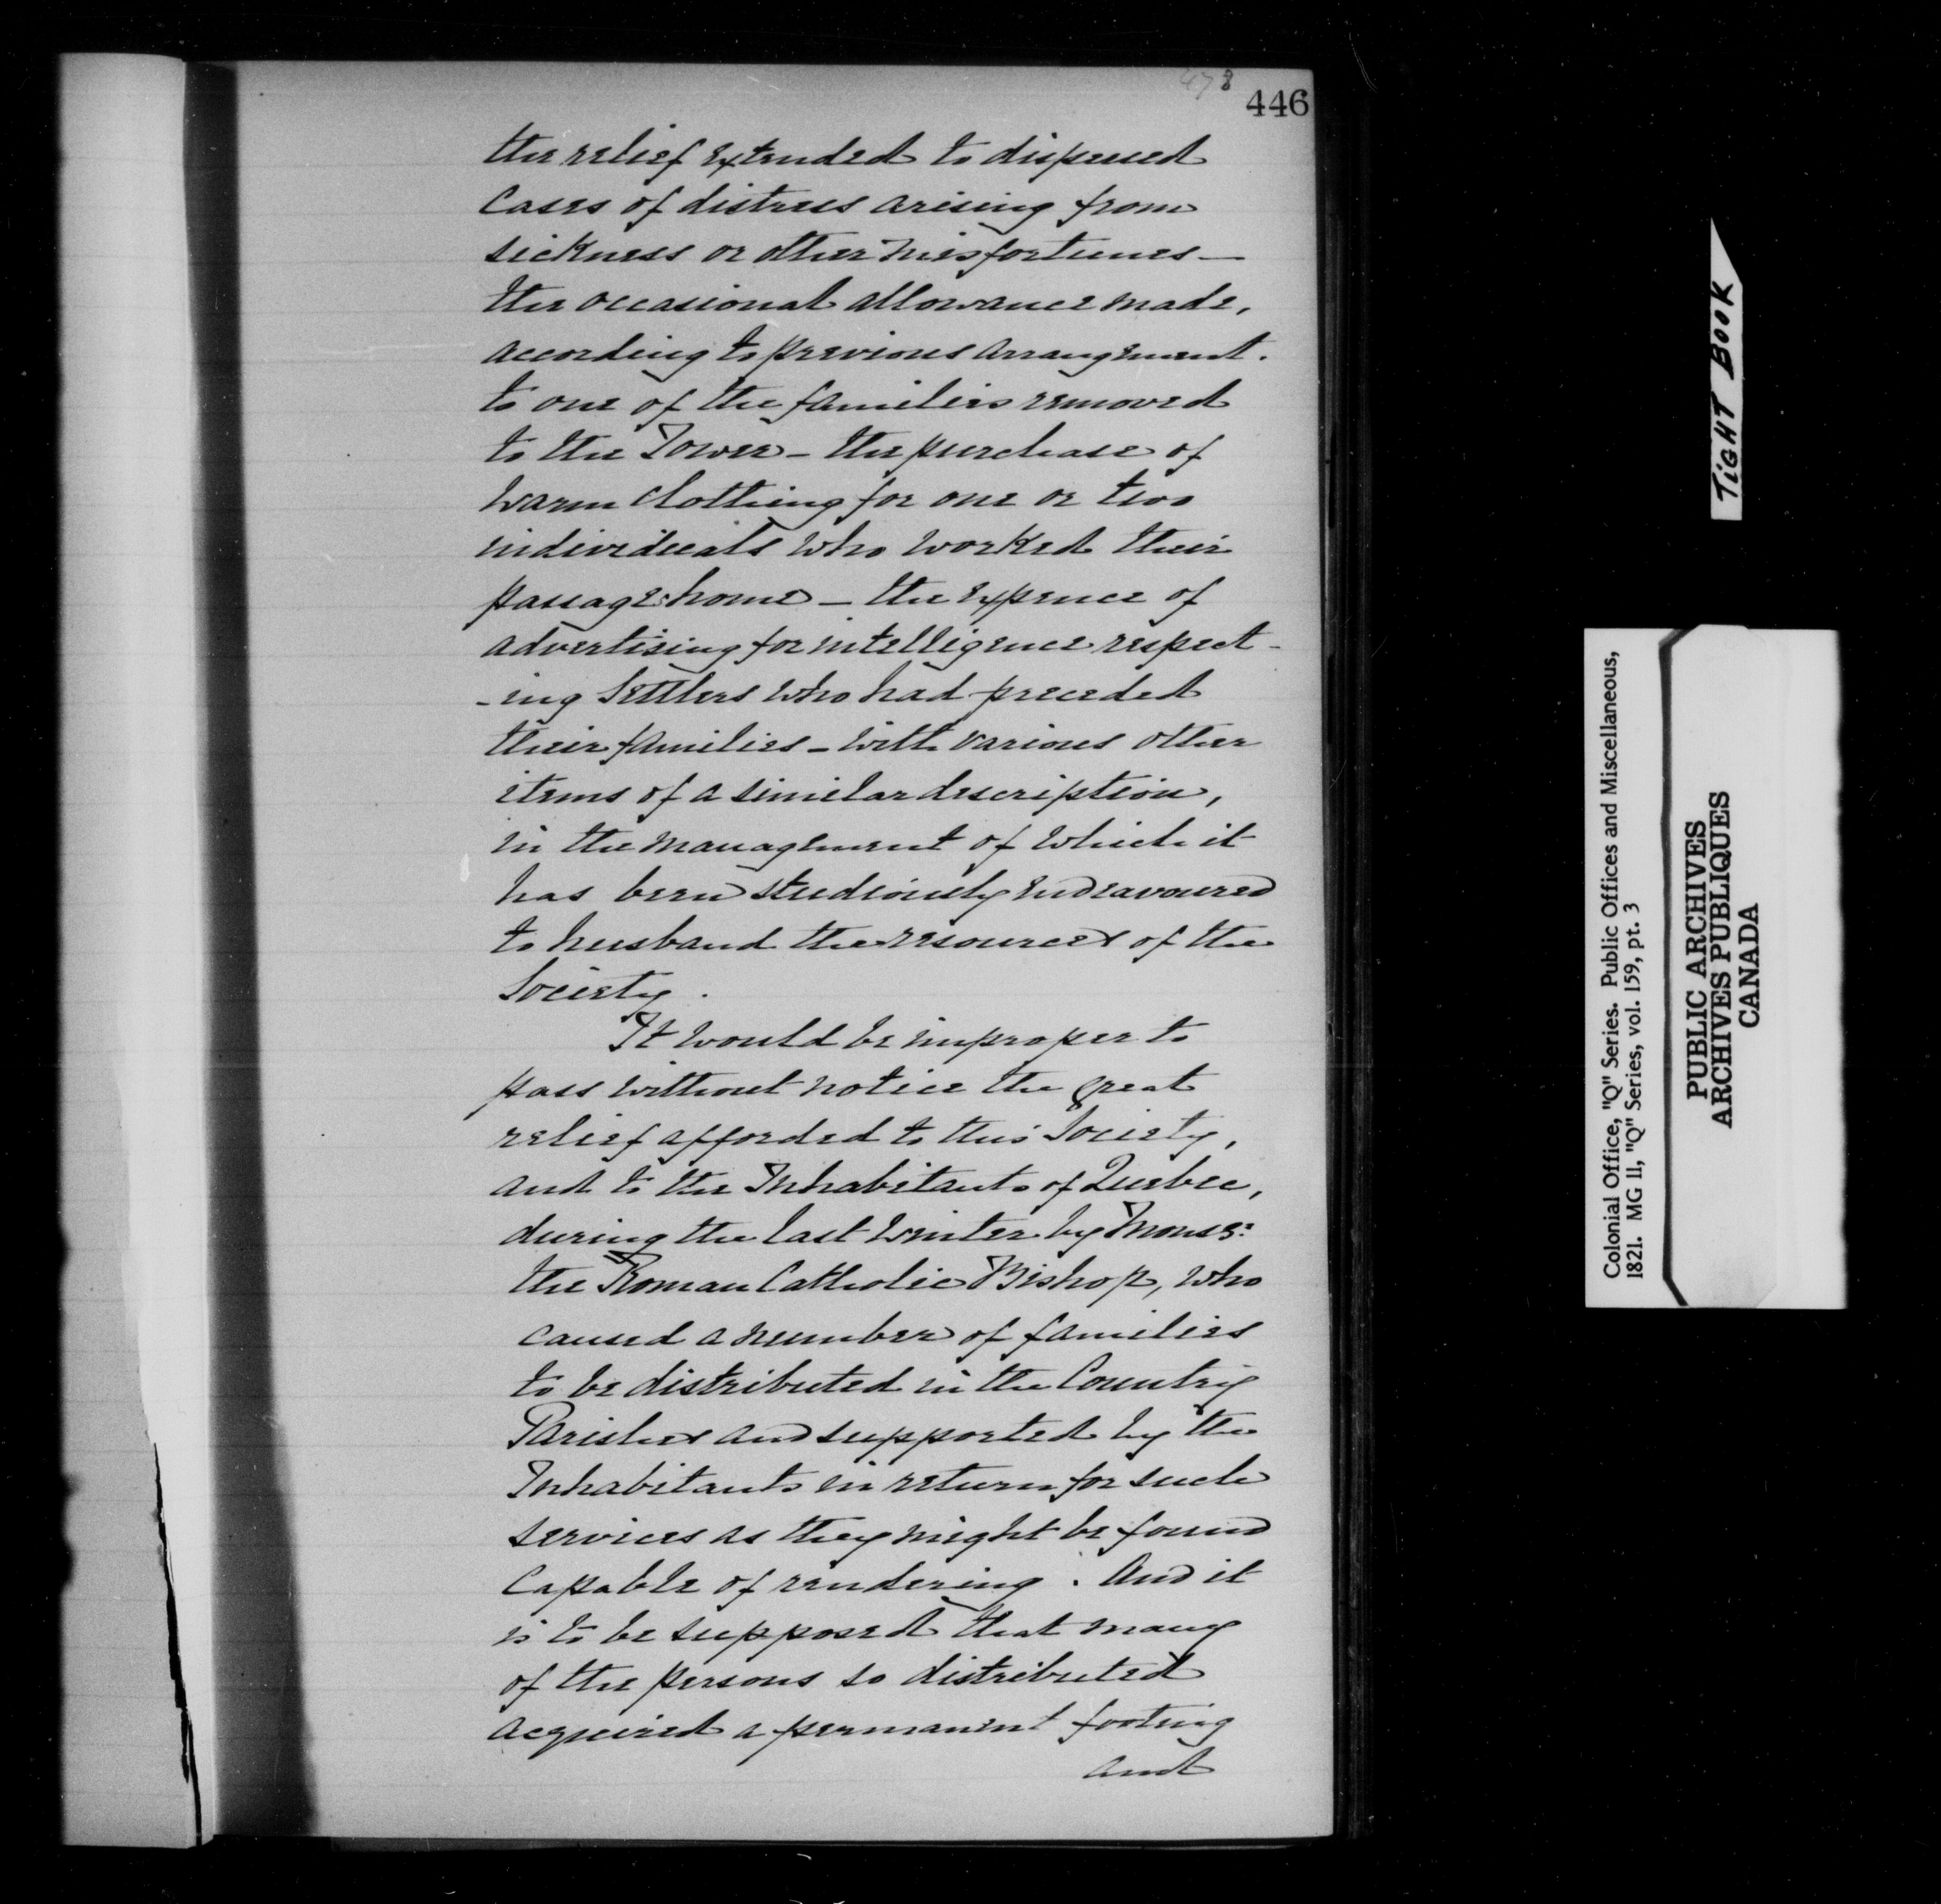 478
446
the relief extended to dispersed
cases of distress arising from
sickness or other misfortunes —
the occasional allowance made,
according to previous arrangment.
to one of the families removed
to the Tower — the purchase of
warm clothing for one or two
individuals who worked their
passage home — the expence of
advertising for intelligence respect-
-ing Settlers who had preceded
their families — with various other
items of a similar description,
in the management of which it
has been studiously endeavoured
to husband the resources of the
Society.
It would be improper to
pass without notice the great
relief afforded to this Society,
and to the Inhabitants of Quebec,
during the last winter by Monsr:
the Roman Catholic Bishop, who
caused a number of families
to be distributed in the Country
Parishes and supported by the
Inhabitants in return for such
services as they might be found
capable of rendering. And it
is to be supposed that many
of the persons so distributed
acquired a permanent footing
and
TIGHT BOOK
Colonial Office, "Q" Series. Public Offices and Miscellaneous,
1821. MG 11, "Q" Series, vol. 159, pt. 3
PUBLIC ARCHIVES
ARCHIVES PUBLIQUES
CANADA